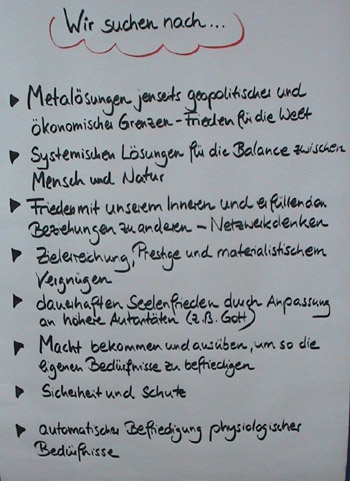 Wir suchen nach...
▶ Metalösungen jenseits geopolitischer und
ökonomischer Grenzen - Frieden für die Welt
▶ Systemischen Lösungen für die Balance zwischen
Mensch und Natur
▶ Frieden mit unserem Inneren und erfüllenden
Beziehungen zu anderen - Netzwerkdenken
▶ Zielerreichung, Prestige und materialistischem
Vergnügen
▶ dauerhaften Seelenfrieden durch Anpassung
an höhere Autoritäten (z.B. Gott)
▶ Macht bekommen und ausüben, um so die
eigenen Bedürfnisse zu befriedigen
▶ Sicherheit und Schutz
▶ automatischer Befriedigung physiologischer
Bedürfnisse